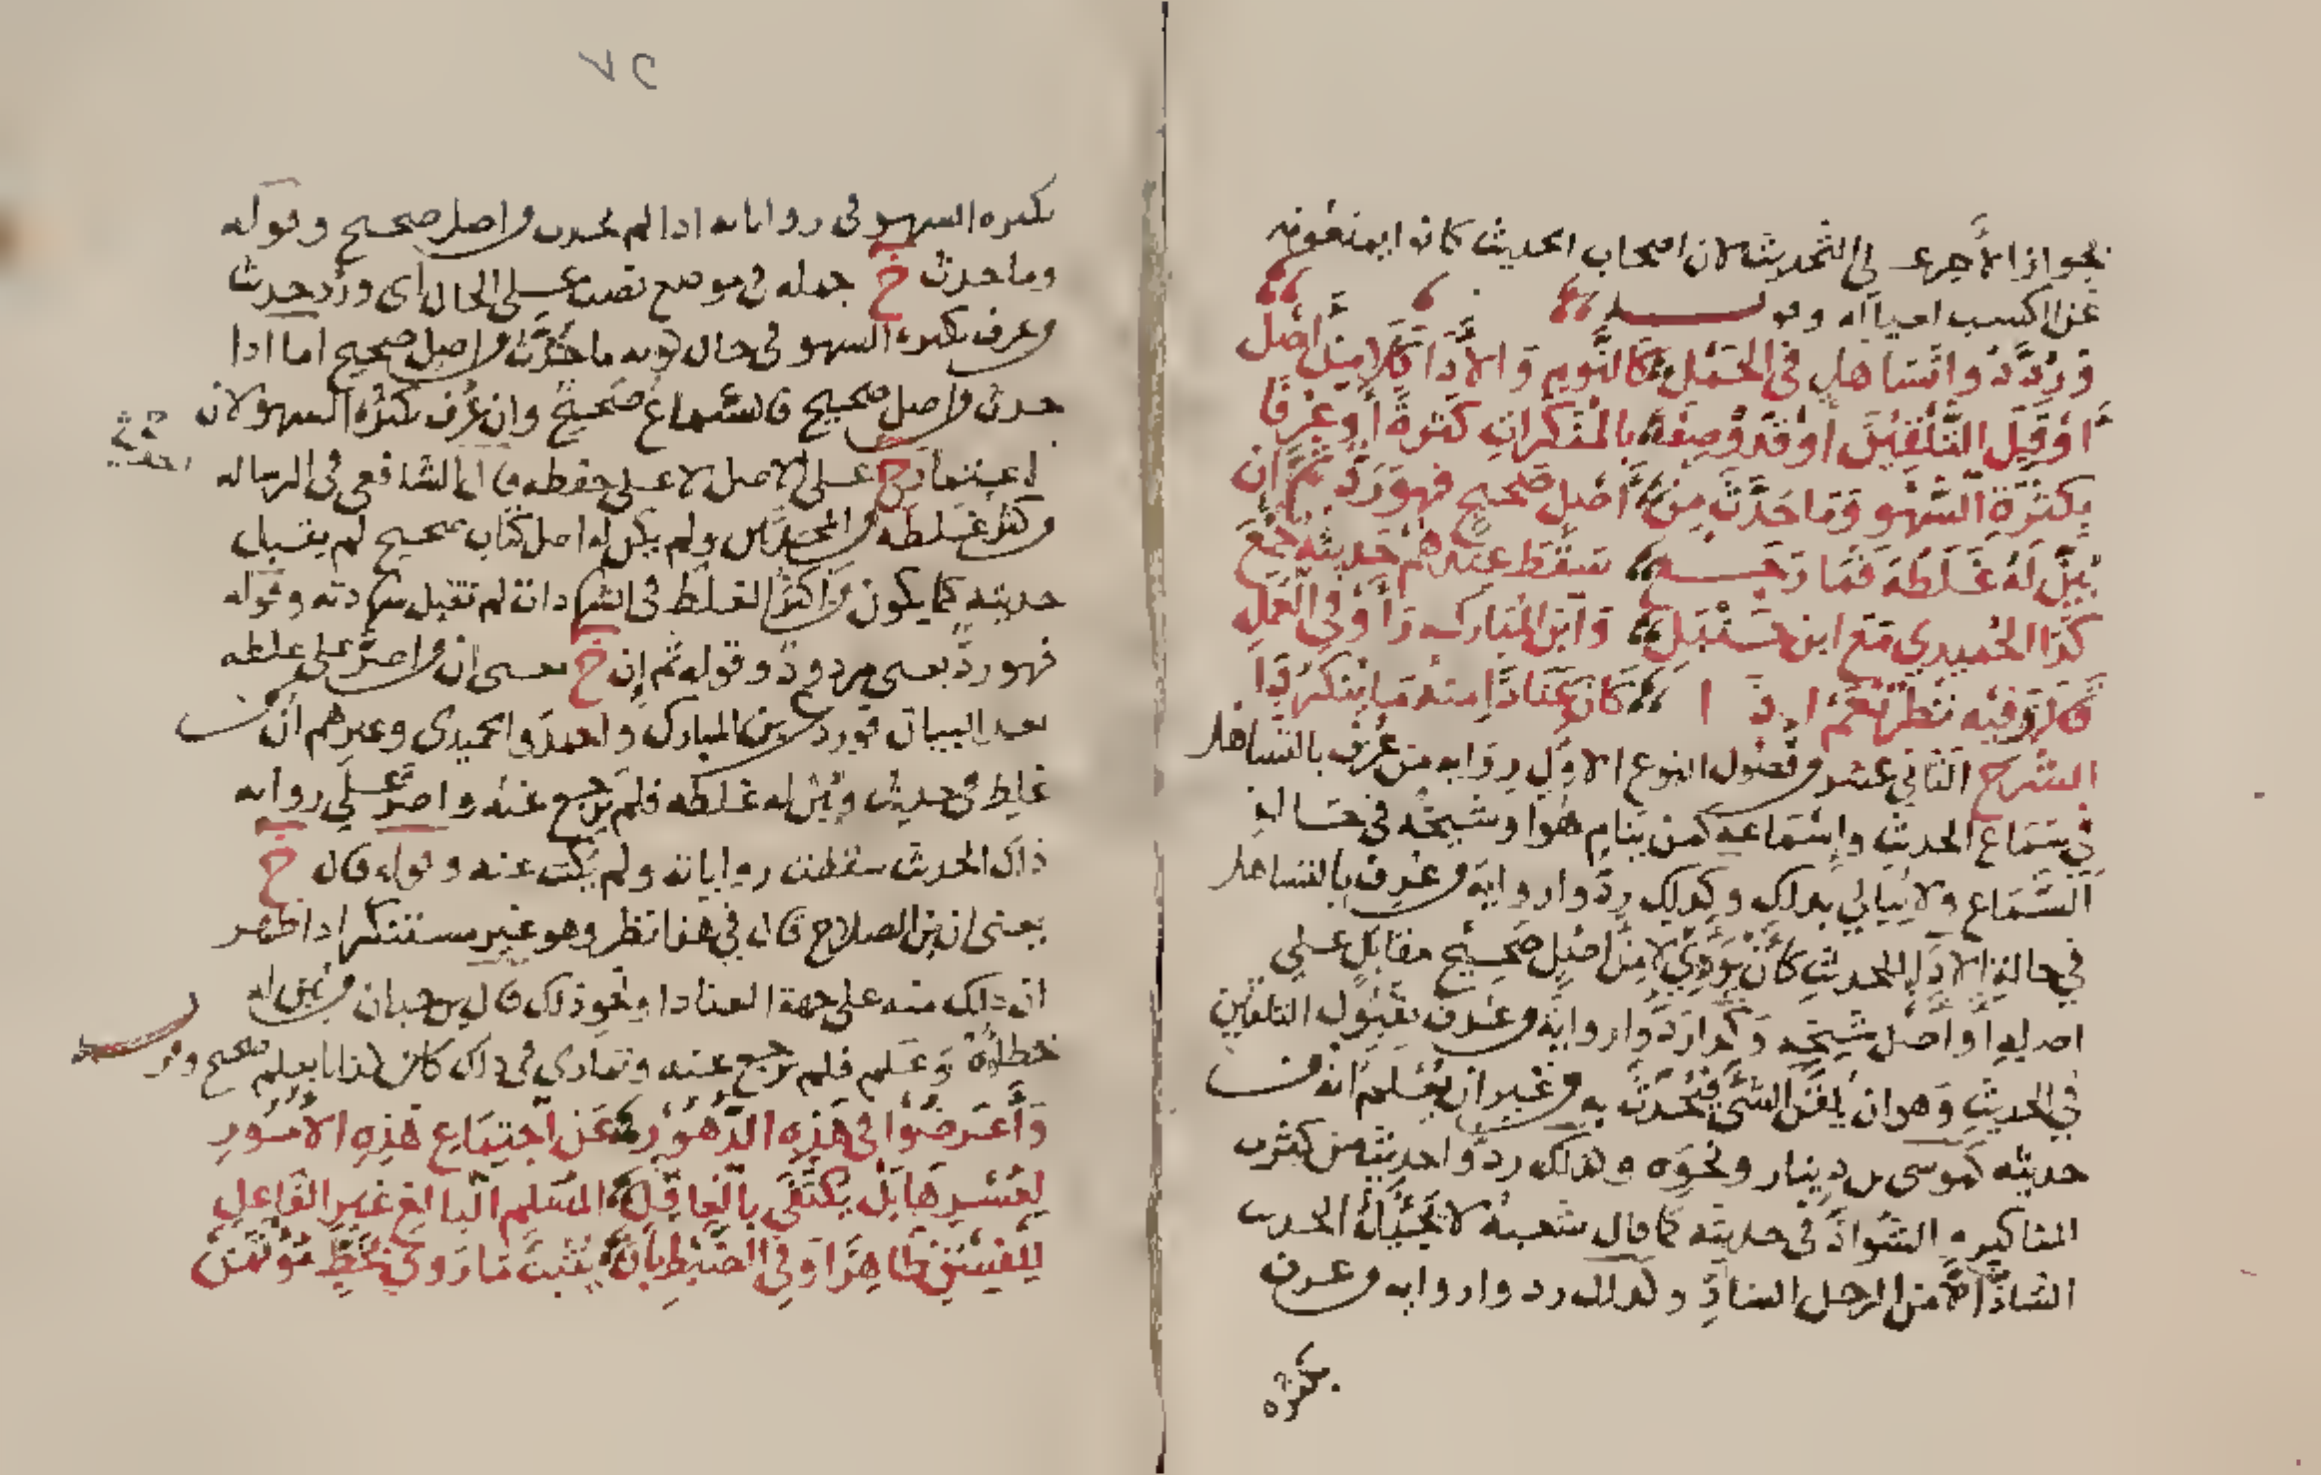 بجواز الأجر على التحديث لان اصحاب الحديث كانوا يمنعونه
عن الكسب لعياله وقوله
وَرُدَّ ذُو اتَسَاهلٍ في الحَمْلِ كَالنَّومِ وَالأدَا كَلا مِنْ أصْل
أوْ قَبِلَ التَّلْقِينَ أوْ قَدْ وُصِفَا بالمُنْكَرَاتِ كَثْرَةً أوْ عُرِفَا
بِكَثْرَةِ السَّهْوِ وَمَا حَدَّثَ مِنْ أصْلٍ صَحيحٍ فهو رَدٌّ ثُمَّ إن
بُيِّنْ لَهُ غَلَطُهُ فَمَا رَجَعْ سَقَطَ عِنْدَهُمْ حَديثُه جُمَعْ
كَذَا الحُمَيدِي مَع ابن حَنْبَل وَابن المُبَارك رَأَوْ في العَمَلِ
قَالَ وَفيه نَظَرٌ نَعَمْ إذا كَانَ عِنَادًا مِنْهُ مَا يُنْكَرُ ذَا
الشرح الثاني عشر من فصول النوع الاول رواية من عُرف بالتساهل
في سماع الحديث وإسماعه كمن ينام هو او شيخه في حالة
السماع ولا يبالي بذلك وكذلك ردّوا رواية من عرف بالتساهل
في حالة الأداء للحديث كأن يؤدي لا من اصل صحيح مقابل على
اصله او اصل شيخه وكذا ردّوا رواية من عرف بقبول التلقين
في الحديث وهو ان يلقن الشئ فيحدث به من غير ان يعلم انه من
حديثه كموسى بن دينار ونحوه وكذلك ردّوا حديث من كثرت
المناكير والشواذ في حديثه كما قال شعبة لا يجيئك الحديث
الشاذ الا من الرجل الشاذ وكذلك ردوا رواية من عرف
بكثرة
٧٥
بكثرة السهو في رواياته اذا لم يحدث من اصل صحيح وقوله
وما حدث خ جملة في موضع نصب على الحال اي ورُد حديث
من عرف بكثرة السهو في حال كونه ما حدّث من اصل صحيح اما اذا
حدث من اصل صحيح فالسماع صحيح وان عُرف بكثرة السهو لان
الاعتماد ح على الاصل لا على حفظه قال الشافعي في الرسالة
من كثر غلطه من المحدثين ولم يكن له اصل كتاب صحيح لم يقبل
حديثه كما يكون من اكثر الغلط في الشهادات لم تقبل شهادته وقوله
فهو ردّ بمعنى مردود وقوله ثم إن خ معنى ان من اصرّ على غلطه
بعد البيان فورد عن ابن المبارك واحمد والحميدي وغيرهم ان من
غلط في حديث وبُيّن له غلطه فلم يرجع عنه واصرّ على رواية
ذاك الحديث سقطت رواياته ولم يكتب عنه وقوله قال خ
يعني ابن الصلاح قال في هذا نظر وهو غير مستنكر اذا ظهر
ان ذلك منه على جهة العناد او نحو ذلك قال بن حبان من بُيّن له
خطاؤه وعلم فلم يرجع عنه وتمادى في ذلك كان كذابا بعلم صحيح وقوله
وَأعْرَضُوا في هَذِه الدُّهُورِ عَن اجتِمَاع هَذِه الأمُورِ
لِعُسْرِهَا بَلْ يُكْتَفَى بالْعَاقِل المُسْلِم البَالغ غير الفَاعِلِ
لِلْفِسْقِ ظَاهِرًا وَفي الضَبْطِ بِأنْ يُثْبِتَ مَا رَوَى بِخَطٍّ مُؤْتَمَنْ